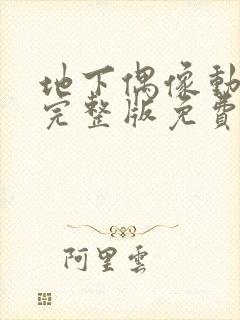 地下偶像動
完整版免費
阿里雲